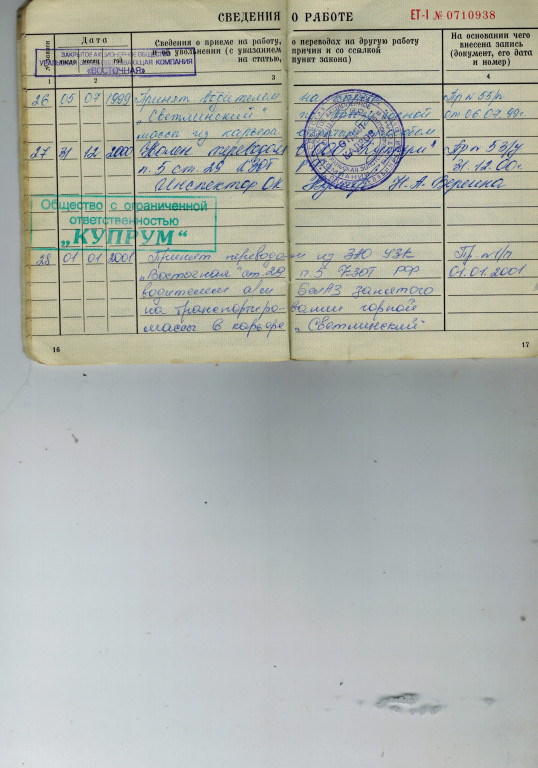 СВЕДЕНИЯ О РАБОТЕ
ЕТ-I № 0710938
Дата
Сведения о приеме на работу, о переводах на другую работу
и об увольнении (с указанием причин и со ссылкой
на статью, пункт закона)
На основании чего
внесена запись
(документ, его дата
и номер)
ЗАКРЫТОЕ АКЦИОНЕРНОЕ ОБЩЕСТВО
КОМПАНИЯ
"ВОСТОЧНАЯ"
1 2 3 4
26 05 07 1999 Принят водителем на
Пр №55/к
"Светлинский"
от 06.07.99г.
массы из карьера
27 31 12 2000 переводом
Пр № 53/у
п. 5 ст. 29 КЗОТ
31.12.00г.
Инспектор ОК Н.А. Верхина
Общество с ограниченной
ответственностью
„КУПРУМ“
28 01 01 2001 Принят переводом из ЗАО УЗК
Пр №1/п
"Восточная" ст. 29 п. 5 КЗОТ РФ
01.01.2001
водителем а/м БелАЗ занятого
на транспортиро- вании горной
массы в карьере "Светлинский"
16
17